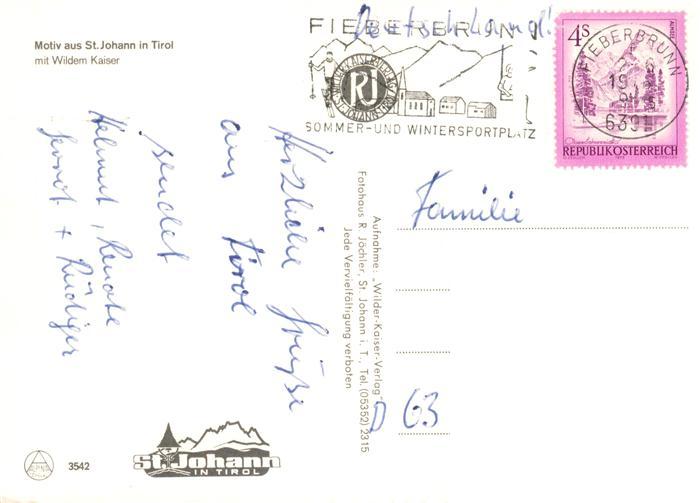 Motiv aus St. Johann in Tirol
mit Wildem Kaiser
Herzliche Grüße
aus Tirol
sendet
Helmut, Renate
+ Rüdiger
3542
St. Johann
IN TIROL
Aufnahme: „Wilder-Kaiser-Verlag"
Fotohaus R. Jöchler, St. Johann i. T., Tel. (05352) 2315
Jede Vervielfältigung verboten
Deutschland!
FIEBERBRUNN
RJ
SOMMER- UND WINTERSPORTPLATZ
FIEBERBRUNN
6391
4S
REPUBLIK ÖSTERREICH
Familie
D 63